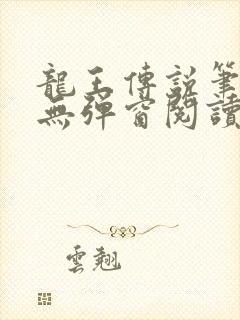 龍王傳說筆
無彈窗閱讀
雲翹